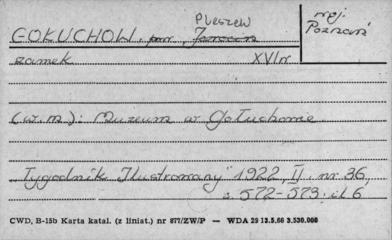 Pleszew
woj. Poznań
GOŁUCHOW. pow. Jarocin
zamek XVI w
(w.m): Muzeum w Gołuchowie
"Tygodnik Ilustrowany" 1922, II. nr 36,
s. 572-573. il 6
CWD, B-15b Karta katal. (z liniat.) nr 877/ZW/P — WDA 29 13.5.68 3.530.000